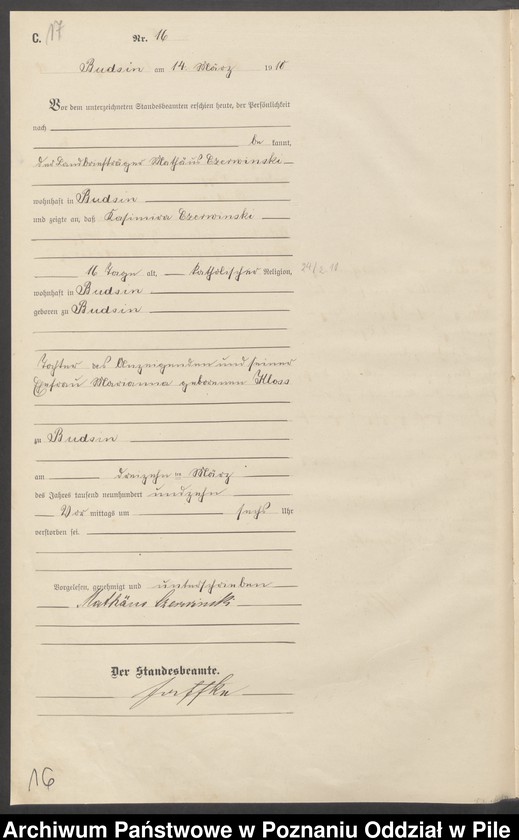 C. 17
Nr. 16
Budsin am 14. März 1910
Vor dem unterzeichneten Standesbeamten erschien heute, der Persönlichkeit
nach
be kannt,
der Landbriefträger Mathäus Czerwinski
wohnhaft in Budsin
und zeigte an, daß Kasimira Czerwinski
16 Tage alt, katholischer Religion,
29/2.10
wohnhaft in Budsin
geboren zu Budsin
Tochter des Anzeigenden und seiner
Ehefrau Marianna geborenen Kloss
zu Budsin
am dreizehn ten März
des Jahres tausend neunhundert undzehn
Vor mittags um sechs Uhr
verstorben sei.
Vorgelesen, genehmigt und unterschrieben
Mathäus Czerwinski
Der Standesbeamte.
16
Archiwum Państwowe w Poznaniu Oddział w Pile